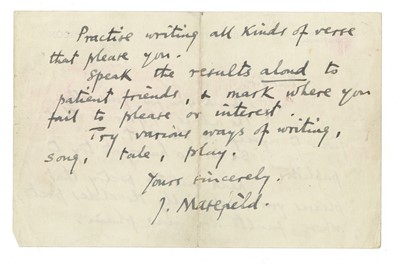 Practise writing all kinds of verse
that please you.
Speak the results aloud to
patient friends, & mark where you
fail to please or interest.
Try various ways of writing,
song, tale, play.
Yours sincerely.
J. Masefield.